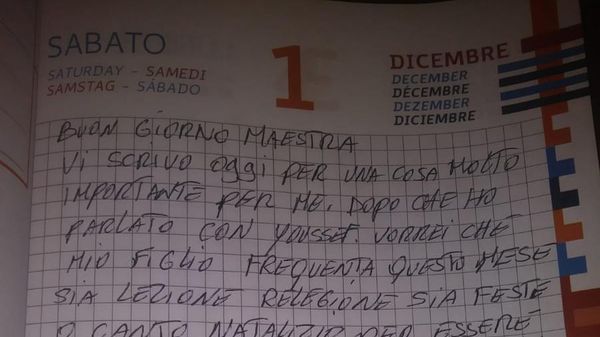 SABATO
SATURDAY - SAMEDI
SAMSTAG - SÁBADO
1
DICEMBRE
DECEMBER
DÉCEMBRE
DEZEMBER
DICIEMBRE
BUON GIORNO MAESTRA
VI SCRIVO OGGI PER UNA COSA MOLTO
IMPORTANTE PER ME. DOPO CHE HO
PARLATO CON YOUSSEF. VORREI CHE
MIO FIGLIO FREQUENTA QUESTO MESE
SIA LEZIONE RELEGIONE SIA FESTE
O CANTO NATALIZIO PER ESSERE